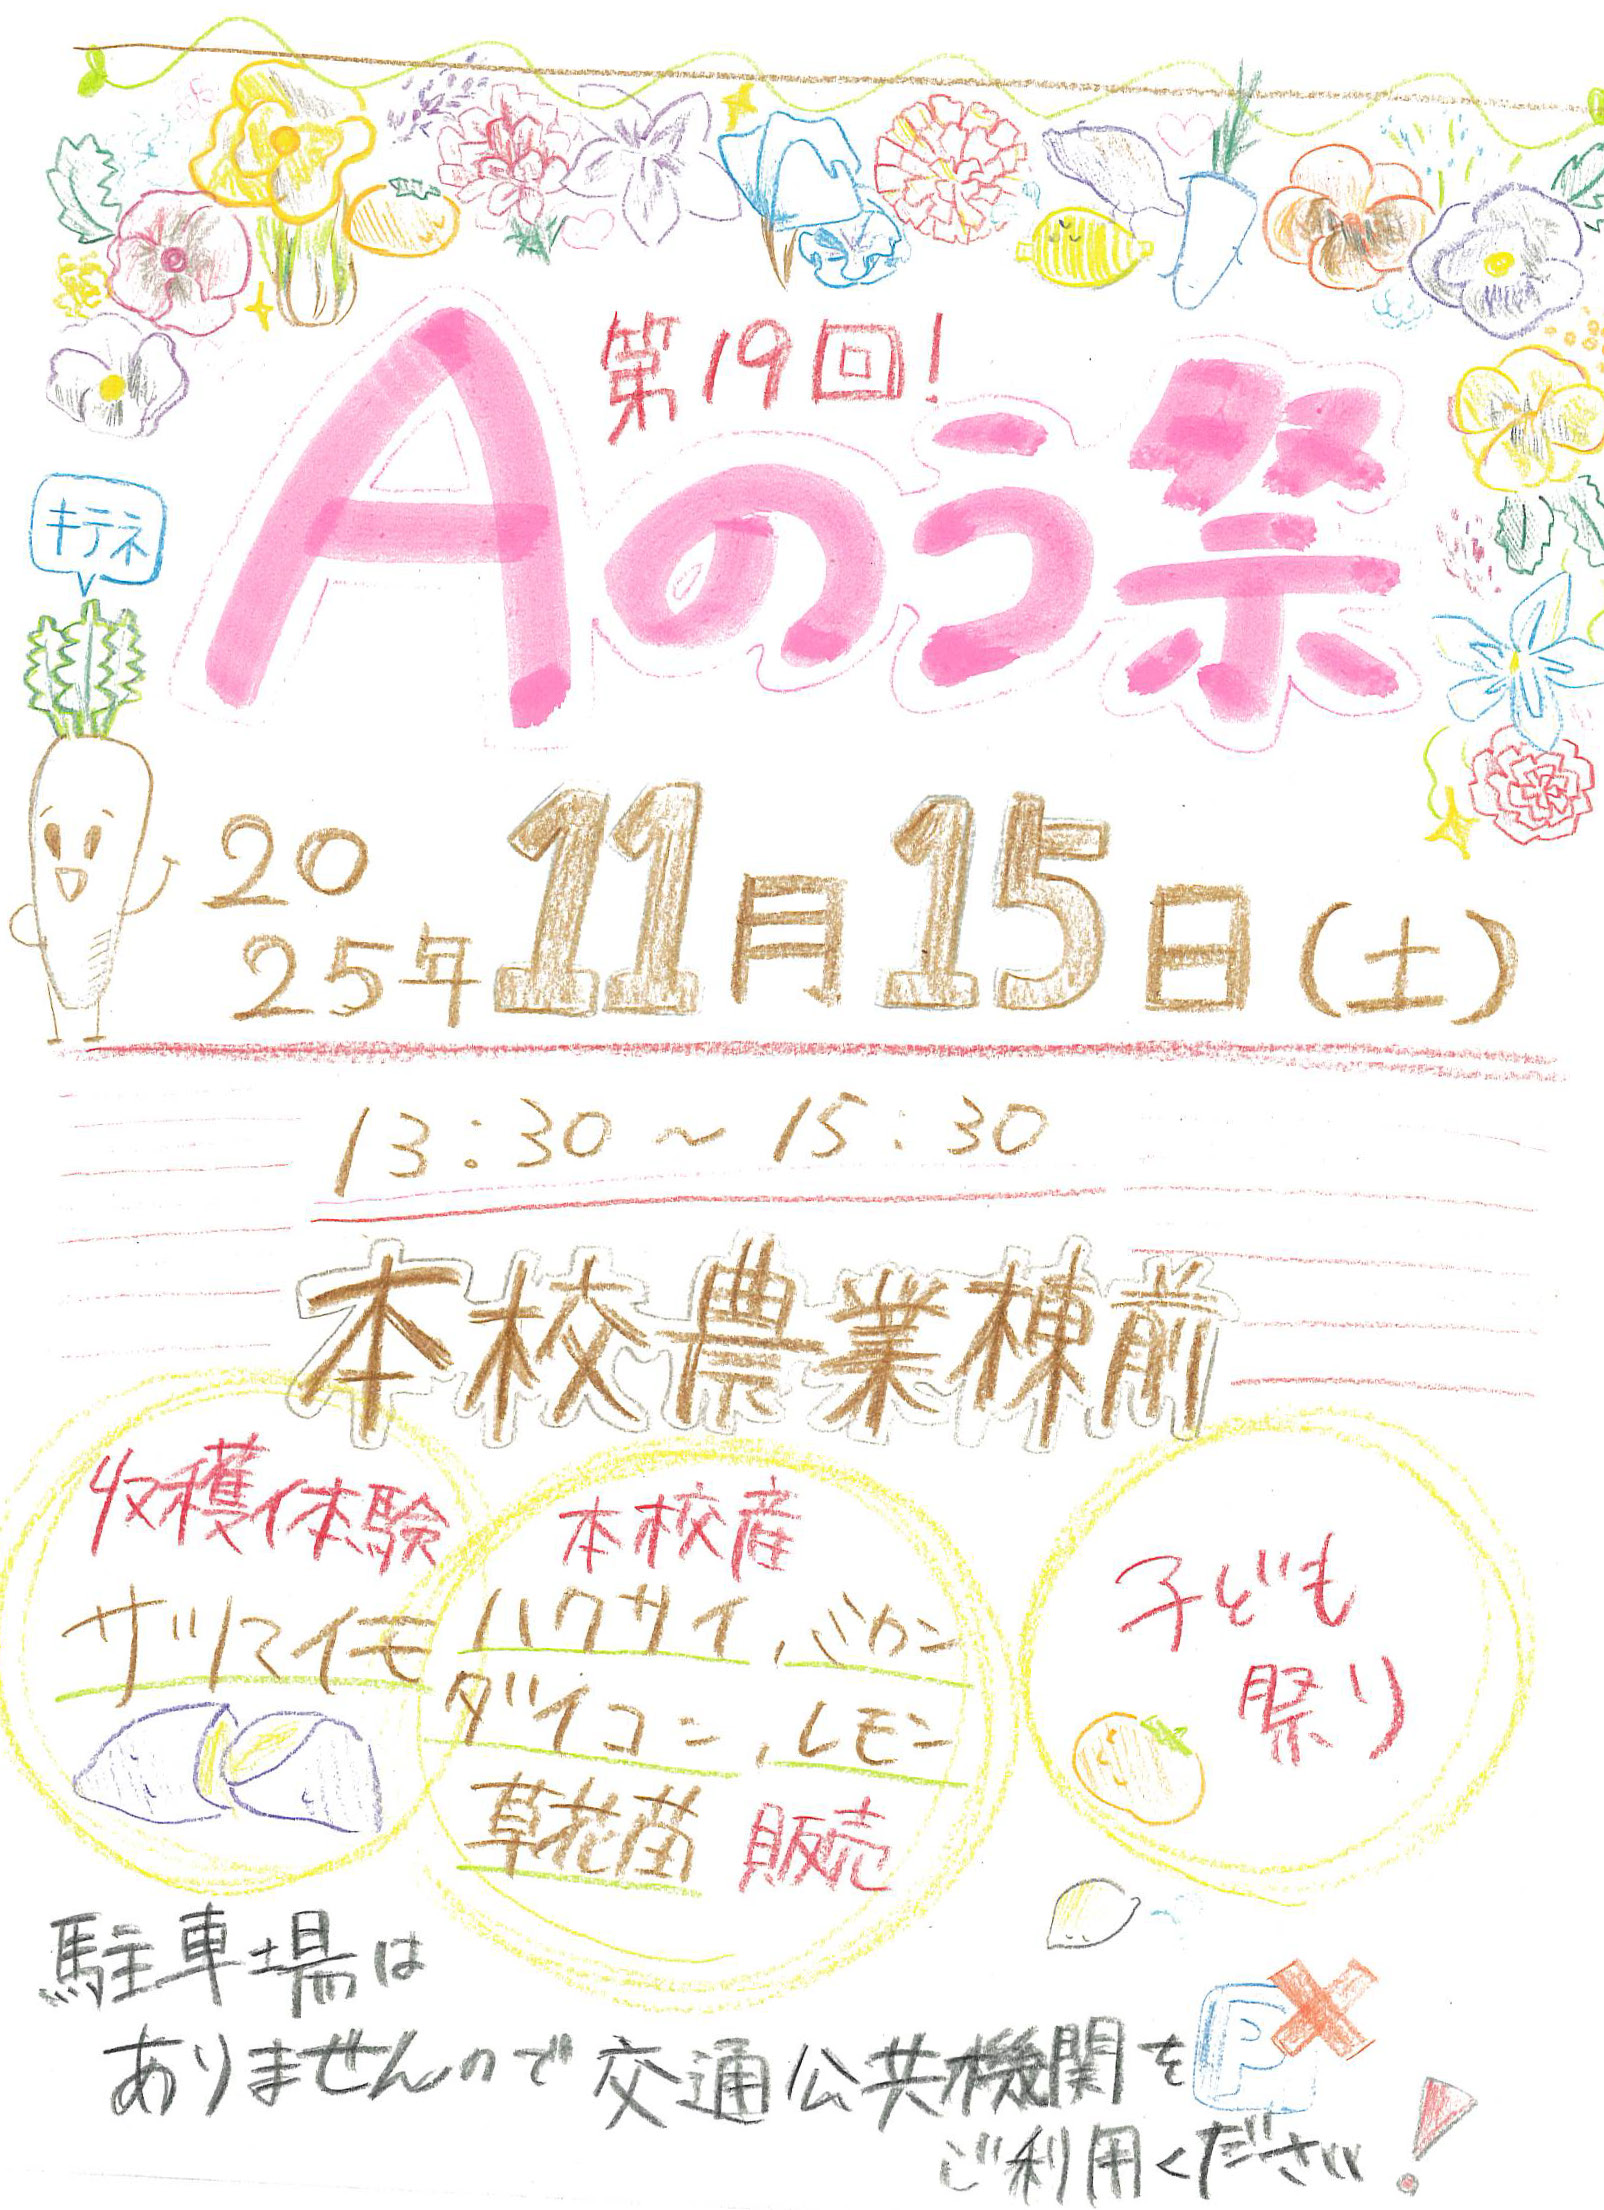 第19回!
Aのう祭
キテネ
20
25年 11月15日(土)
13:30～15:30
本校農業棟前
収穫体験
サツマイモ
本校産
ハクサイ,ミカン
ダイコン,レモン
草花苗 販売
子ども
祭り
駐車場は
ありませんので交通公共機関を
P
ご利用ください!